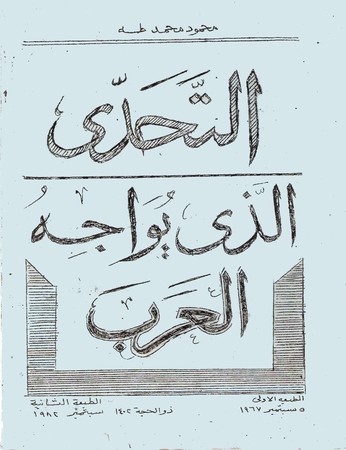 محمود محمد طه
التَّحَدِّى
الذَّى يُواجِهُ
العَرَب
الطبعة الاولى
٥ سبتمبر ١٩٦٧
الطبعة الثانية
ذو الحجة ١٤٠٢ سبتمبر ١٩٨٢